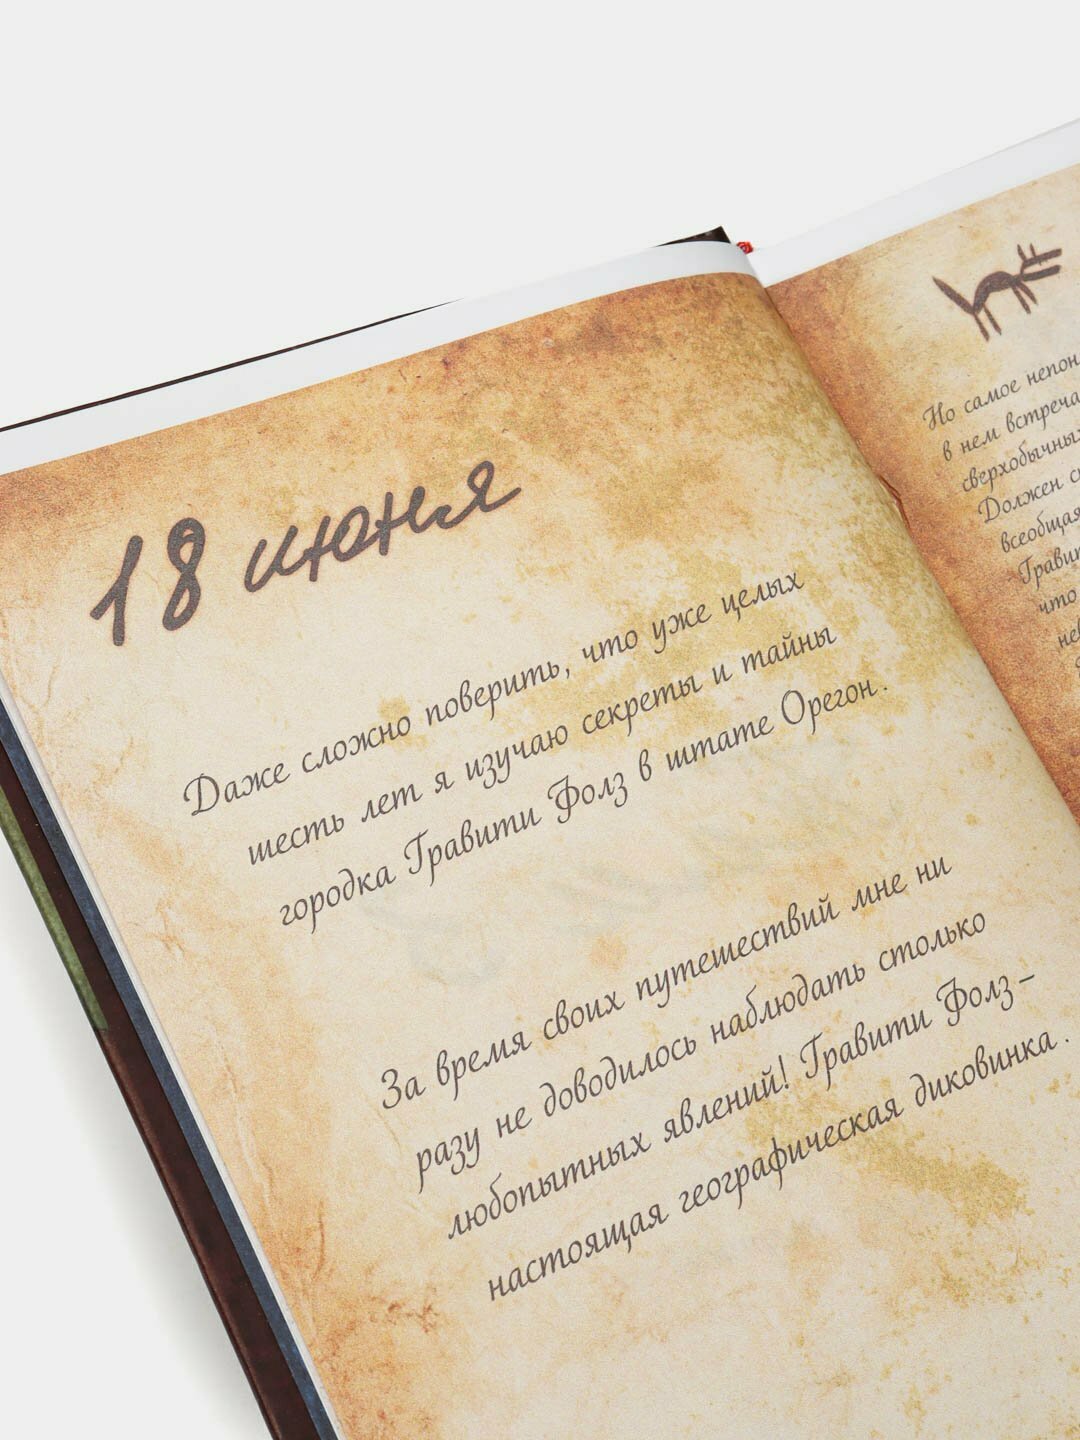 18 июня
Даже сложно поверить, что уже целых
шесть лет я изучаю секреты и тайны
городка Гравити Фолз в штате Орегон.
За время своих путешествий мне ни
разу не доводилось наблюдать столько
любопытных явлений! Гравити Фолз –
настоящая географическая диковинка.
Но самое
в нем
Должен
что